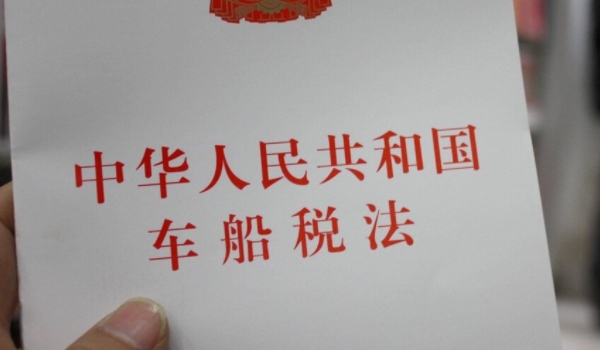 中华人民共和国
车船税法